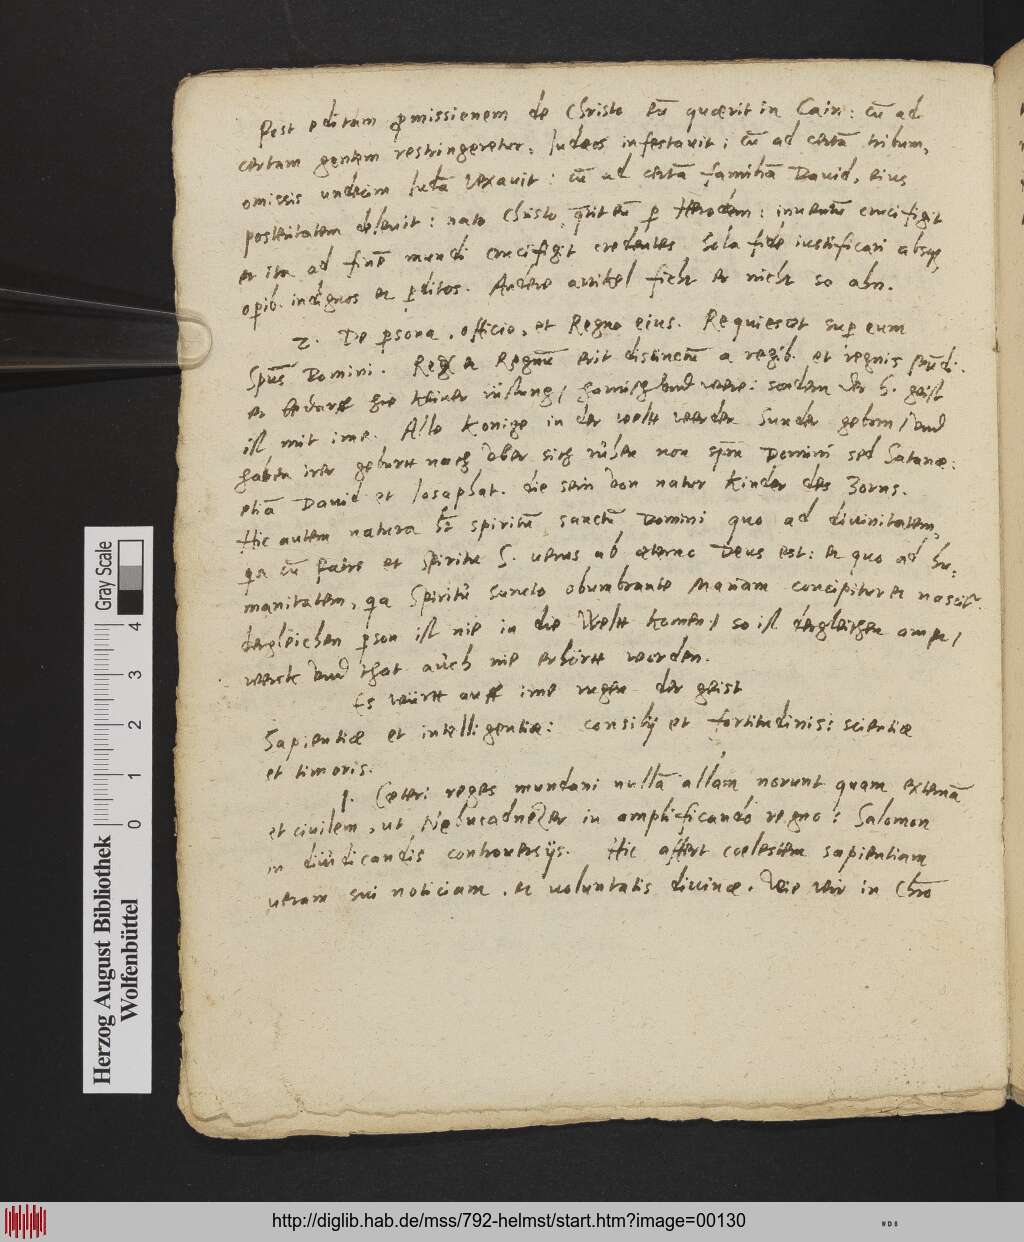 Post editam ꝓmissionem de Christo eũ quærit in Cain: cũ ad
certam gentem restringeretur, Judæos infestauit: cũ ad certã tribum,
omissis undecim Judã vexauit: cũ ad certã familiã Dauid, eius
posteritatem deleuit: nato Christo, q̃rit eũ ꝑ Herodem: inuentũ crucifigit
et ita ad finẽ mundi crucifigit credentes Sola fide iustificari absq,
oꝑib. indignos et ꝑditos. Andere artikel ficht er nicht so ahn.
2. De ꝑsona, officio, et Regno eius. Requiescet super eum
Spũs Domini. Rex et Regnũ erit distinctũ a regib. et regnis mũdi.
er bedarff hie keiner rüstung/ harnisch vnd were: sondern der h. geist
ist mit ime. Alle Konige in der welt werden Sunder geborn/ vnd
haben irer geburtt nach vber sich ruhen non spm̃ Domini sed Satanæ:
etiã Dauid et Josaphat. die sein von natur Kinder des Zorns.
Hic autem natura spiritũ sanctũ Domini quo ad diuinitatem,
qa cũ patre et Spiritu S. uerus ab æterno Deus est: et quo ad hu:
manitatem, qa Spiritũ sancto obumbrante Mariam concipitur et nascitr.
dergleichen ꝑson ist nie in die Weltt komen/ so ist dergleichen /
werck vnd that auch nie erhörtt worden.
Es württ auff ime rugen der geist
Sapientiæ et intelligentiæ: consilij et fortitudinis: scientiæ
et timoris.
1. Cæteri reges mundani nullã aliam norunt quam externã
et ciuilem, ut Nebucadnezer in amplificando regno: Salomon
in diiudicandis controuersijs. Hic affert cœlestem sapientiam
ueram sui noticiam, et uoluntatis diuinæ. Wie wir in Chro
Herzog August Bibliothek
Wolfenbüttel
Gray Scale
0 1 2 3 4
http://diglib.hab.de/mss/792-helmst/start.htm?image=00130